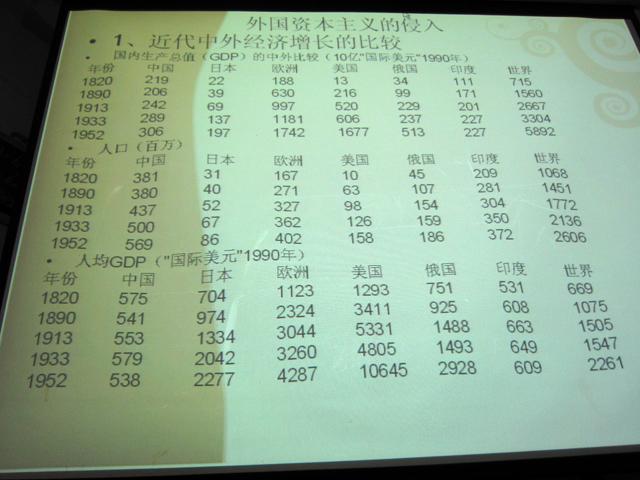 外国资本主义的侵入
• 1、近代中外经济增长的比较
• 国内生产总值（GDP）的中外比较（10亿"国际美元"1990年）
年份 中国 日本 欧洲 美国 俄国 印度 世界
1820 219 22 188 13 34 111 715
1890 206 39 630 216 99 171 1560
1913 242 69 997 520 229 201 2667
1933 289 137 1181 606 237 227 3304
1952 306 197 1742 1677 513 227 5892
• 人口（百万）
年份 中国 日本 欧洲 美国 俄国 印度 世界
1820 381 31 167 10 45 209 1068
1890 380 40 271 63 107 281 1451
1913 437 52 327 98 154 304 1772
1933 500 67 362 126 159 350 2136
1952 569 86 402 158 186 372 2606
• 人均GDP（"国际美元"1990年）
年份 中国 日本 欧洲 美国 俄国 印度 世界
1820 575 704 1123 1293 751 531 669
1890 541 974 2324 3411 925 608 1075
1913 553 1334 3044 5331 1488 663 1505
1933 579 2042 3260 4805 1493 649 1547
1952 538 2277 4287 10645 2928 609 2261